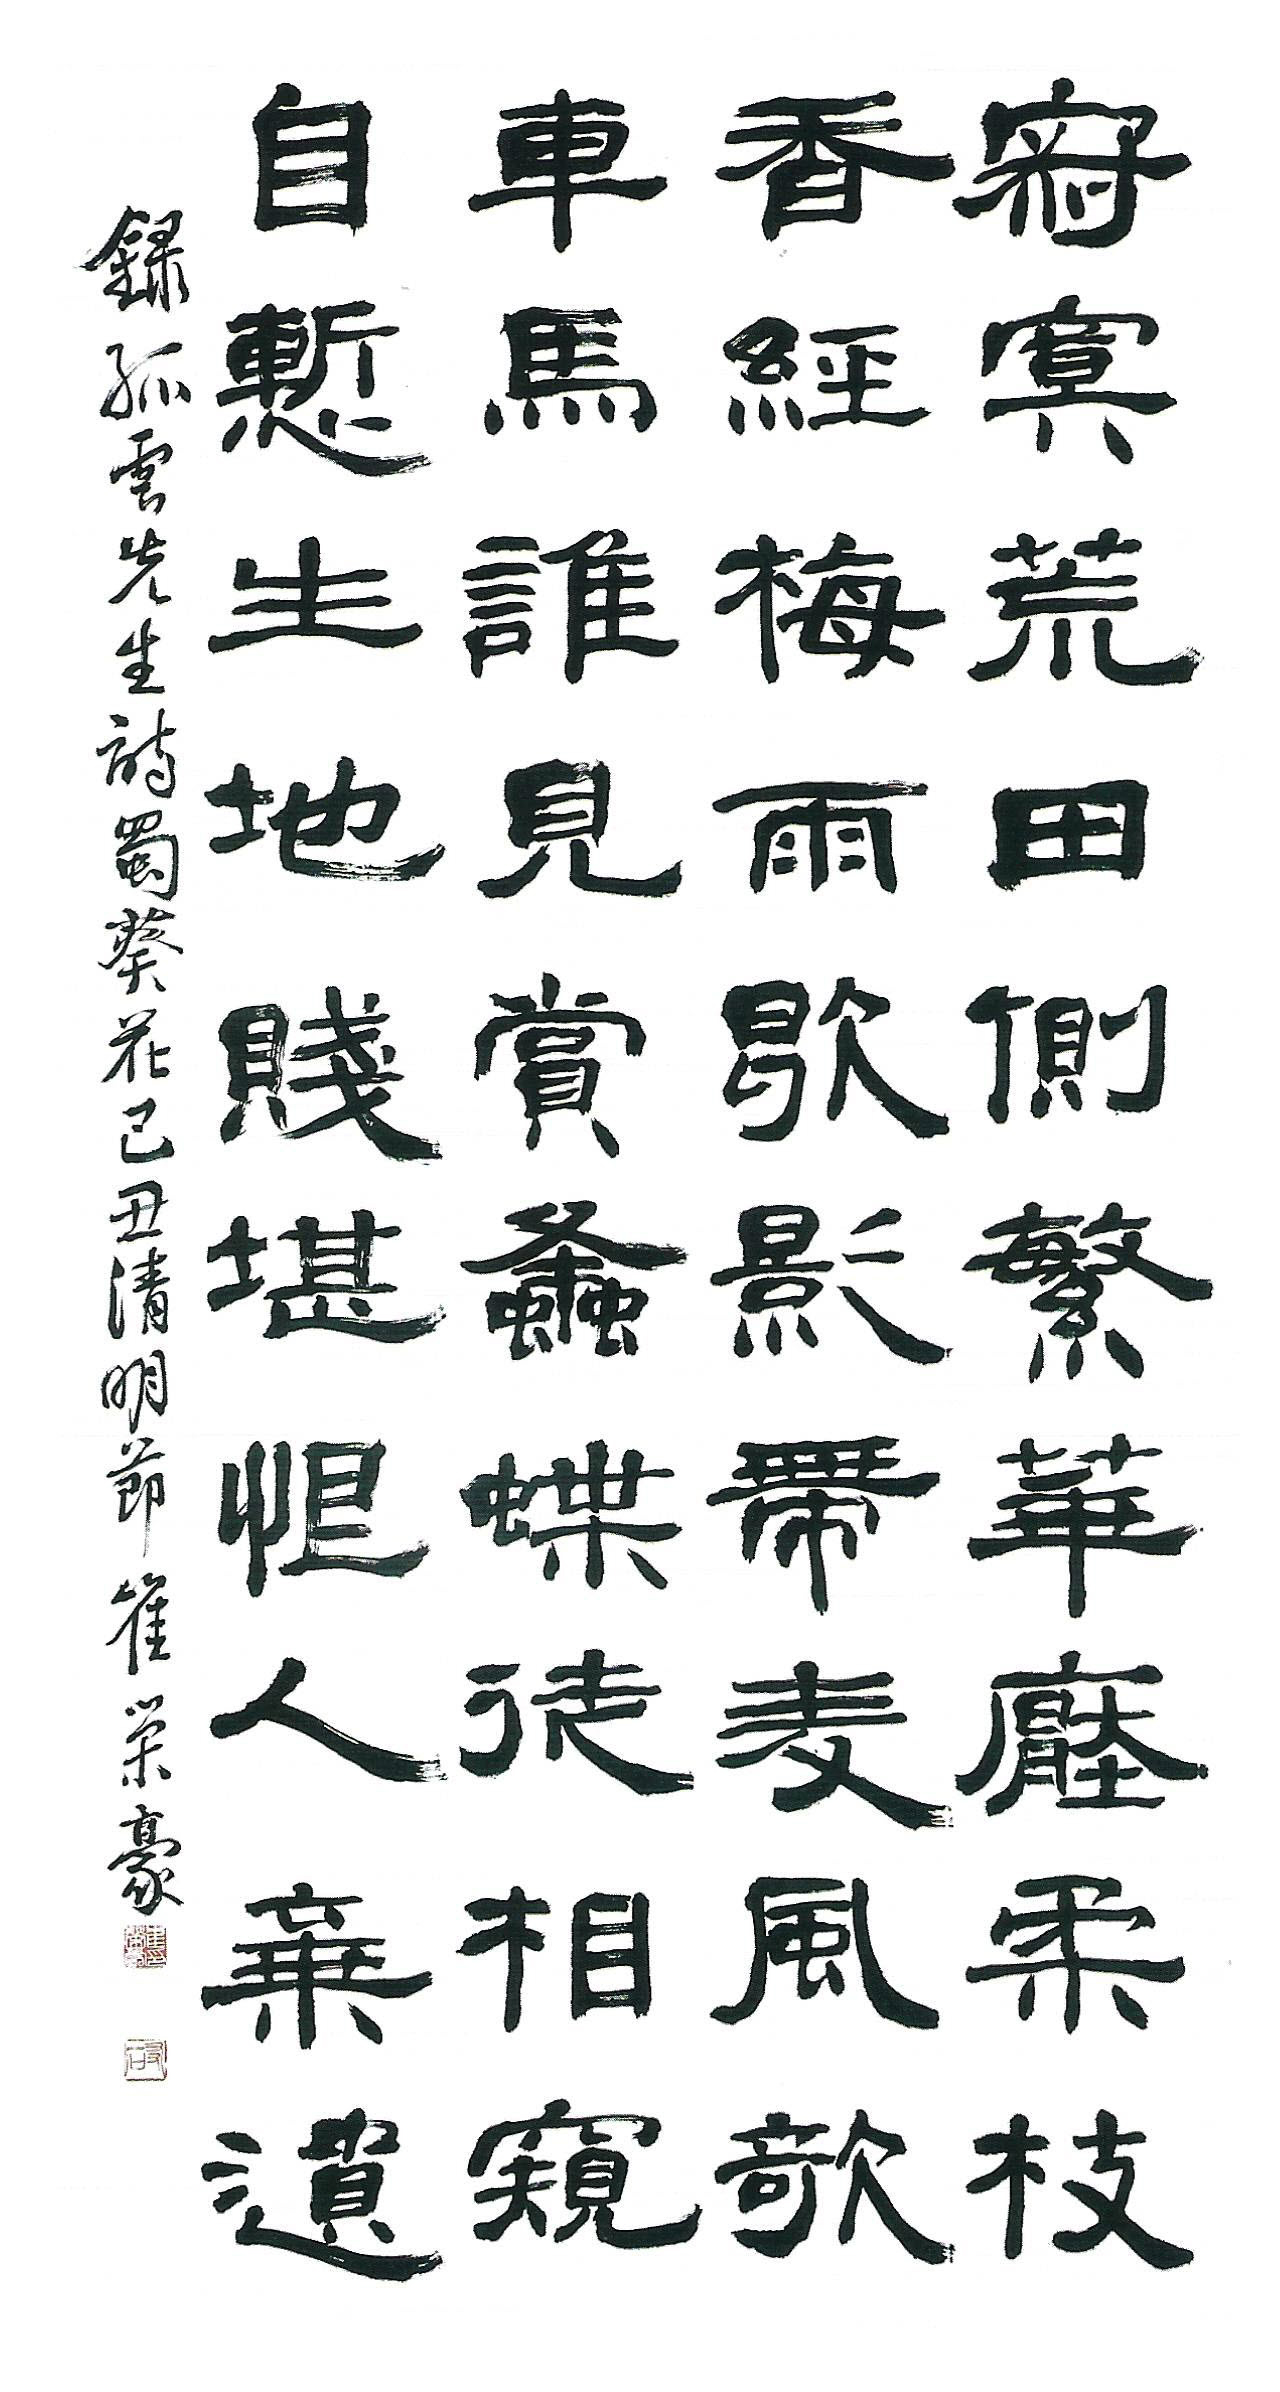 寂寞荒田側繁華壓柔枝
香經梅雨歇影帶麦風欹
車馬誰見賞蠭蝶徒相窺
自慙生地賤堪恨人棄遺
錄孤雲先生詩蜀葵花己丑清明節崔荣豪